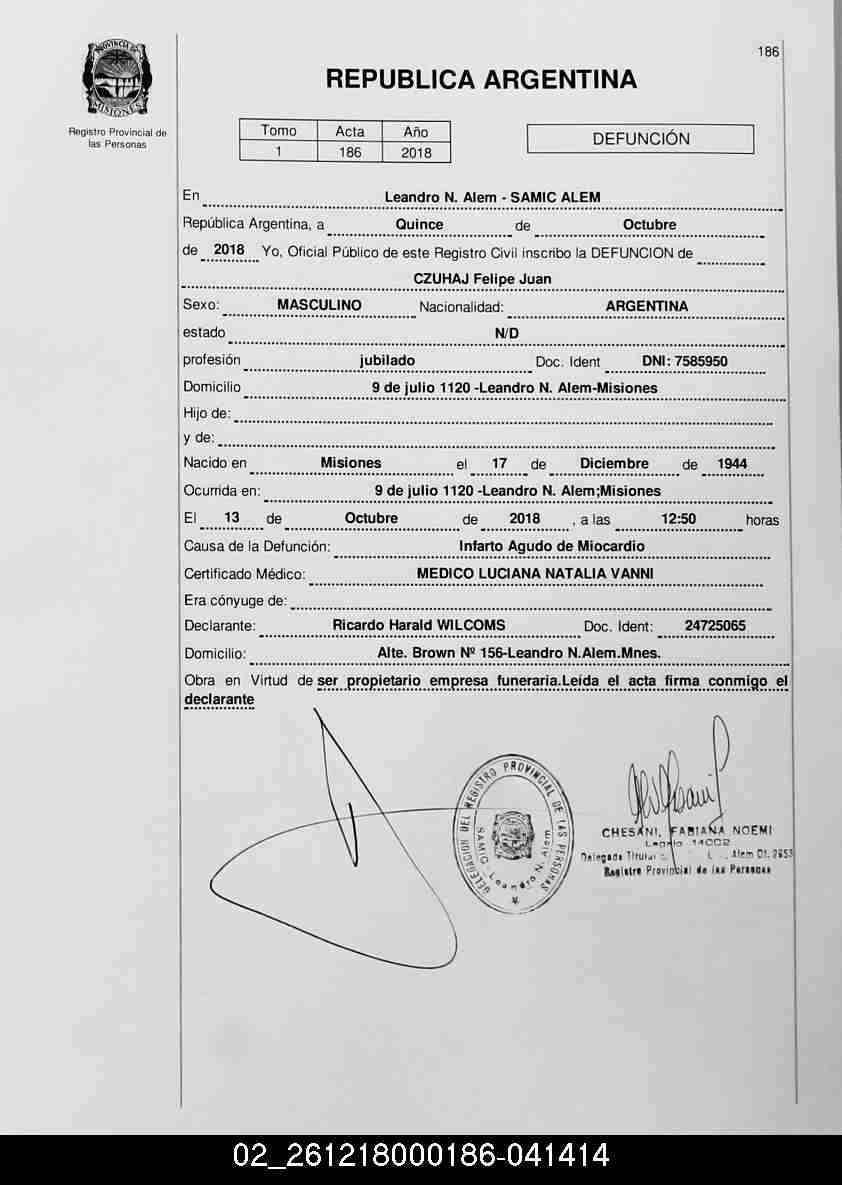 186
PROVINCIA DE
MISIONES
Registro Provincial de
las Personas
REPUBLICA ARGENTINA
Tomo Acta Año
1 186 2018
DEFUNCIÓN
En Leandro N. Alem - SAMIC ALEM
República Argentina, a Quince de Octubre
de 2018 Yo, Oficial Público de este Registro Civil inscribo la DEFUNCION de
CZUHAJ Felipe Juan
Sexo: MASCULINO Nacionalidad: ARGENTINA
estado N/D
profesión jubilado Doc. Ident DNI: 7585950
Domicilio 9 de julio 1120 -Leandro N. Alem-Misiones
Hijo de:
y de:
Nacido en Misiones el 17 de Diciembre de 1944
Ocurrida en: 9 de julio 1120 -Leandro N. Alem;Misiones
El 13 de Octubre de 2018 , a las 12:50 horas
Causa de la Defunción: Infarto Agudo de Miocardio
Certificado Médico: MEDICO LUCIANA NATALIA VANNI
Era cónyuge de:
Declarante: Ricardo Harald WILCOMS Doc. Ident: 24725065
Domicilio: Alte. Brown Nº 156-Leandro N.Alem.Mnes.
Obra en Virtud de ser propietario empresa funeraria.Leída el acta firma conmigo el
declarante
DELEGACION DEL REGISTRO PROVINCIAL DE LAS PERSONAS
SAMIC - Leandro N. Alem
CHESANI, FABIANA NOEMI
Legajo 14002
Delegada Titular Alem Of. 2653
Registro Provincial de las Personas
02_261218000186-041414